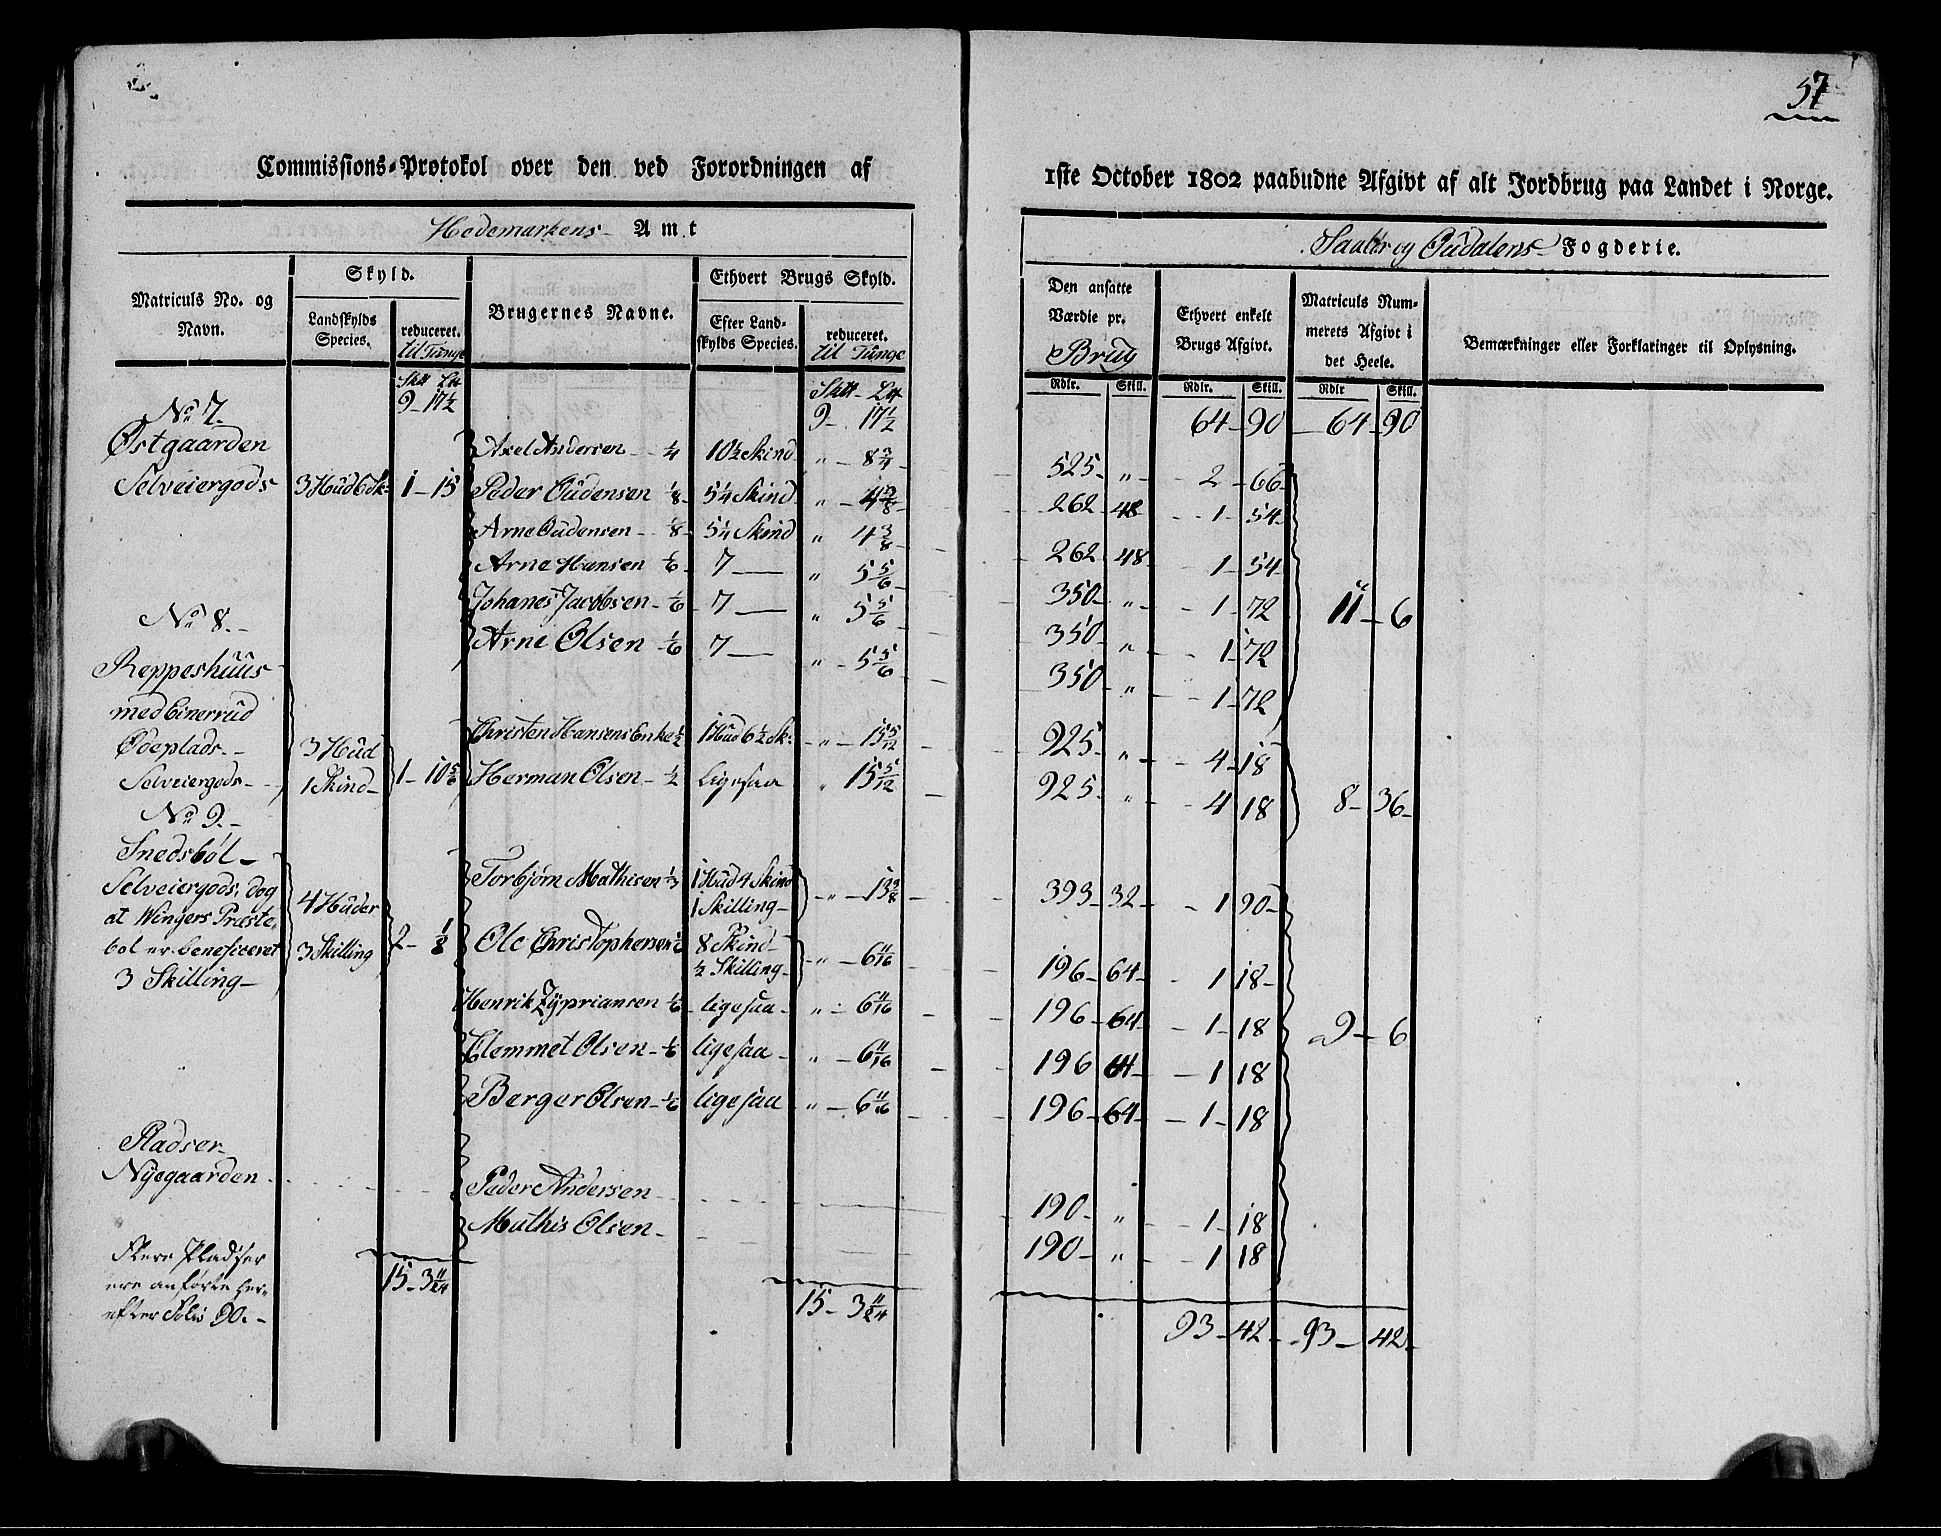 57
Commissions-Protokol over den ved Forordningen af 1ste October 1802 paabudne Afgivt af alt Jordbrug paa Landet i Norge.
Hedemarkens Amt
Saaløer og Oudalens Fogderie.
Matriculs No. og Navn.
Skyld.
Landskylds Species.
reduceret. til Tunge
Brugernes Navne.
Ethvert Brugs Skyld.
Efter Landskylds Species.
reduceret. til Tunge
Den ansatte Værdie pr. Brug
Ethvert enkelt Brugs Afgivt.
Matriculs Nummerets Afgivt i det Heele.
Bemærkninger eller Forklaringer til Oplysning.
Rdlr. Skill. Rdlr. Skill. Rdlr Skill.
9 - 17½ 9 - 17½ 64 - 90 - 64 - 90
No 7.
Østgaarden
Selveiergods 3 Hud 6 Sk: 1 - 15
Axel Andersen - ¼ 10½ Skind „ - 8¾ 525 - „ - 2 - 66
Peder Oudensen ⅛ 5¼ Skind „ - 4⅜ 262 48 - 1 - 54
Arne Oudensen - ⅛ 5¼ Skind „ 4⅜ 262 - 48 - 1 - 54
Arne Hansen ⅙ 7 — „ 5⅚ 350 - „ - 1 - 72
Johanes Jacobsen - ⅙ 7 — „ 5⅚ 350 - „ - 1 - 72
Arne Olsen - ⅙ 7 — „ - 5⅚ 350 „ - 1 - 72
11 - 6
No 8. -
Reppeshuus
med Einerrud
Ødeplads -
Selveiergods - 3 Hud 1 Skind - 1 - 10⅚
Christen Hansens Enke ½ 1 Hud 6½ Sk: „ - 15 5/12 925 - „ - 4 - 18
Herman Olsen - ½ Ligesaa „ 15 5/12 925 - „ - 4 18
8 - 36
No 9. -
Snedsböl -
Selveiergods, dog
at Wingers Præste-
bol er beneficeret
3 Skilling - 4 Huder 3 Skilling 2 - ⅛
Torbjørn Mathisen ⅓ 1 Hud 4 Skind 1 Skilling - „ - 13⅜ 393 - 32 - 1 90
Ole Christophersen ⅙ 8 Skind ½ Skilling - „ - 6 11/16 196 - 64 - 1 18
Henrik Zypriansen ⅙ ligesaa - „ - 6 11/16 196 - 64 - 1 - 18
Clemmet Olsen - ⅙ ligesaa - „ - 6 11/16 196 64 - 1 18
Berger Olsen - ⅙ ligesaa „ - 6 11/16 196 - 64 - 1 - 18
9 - 6
Pladser -
Nyegaarden -
Peder Andersen 190 - „ - 1 - 18
Mathis Olsen - 190 - „ - 1 18
Flere Pladser
ere anførte her-
efter Folio 90. -
15 - 3 11/24 15 - 3 11/24 93 - 42 - 93 - 42